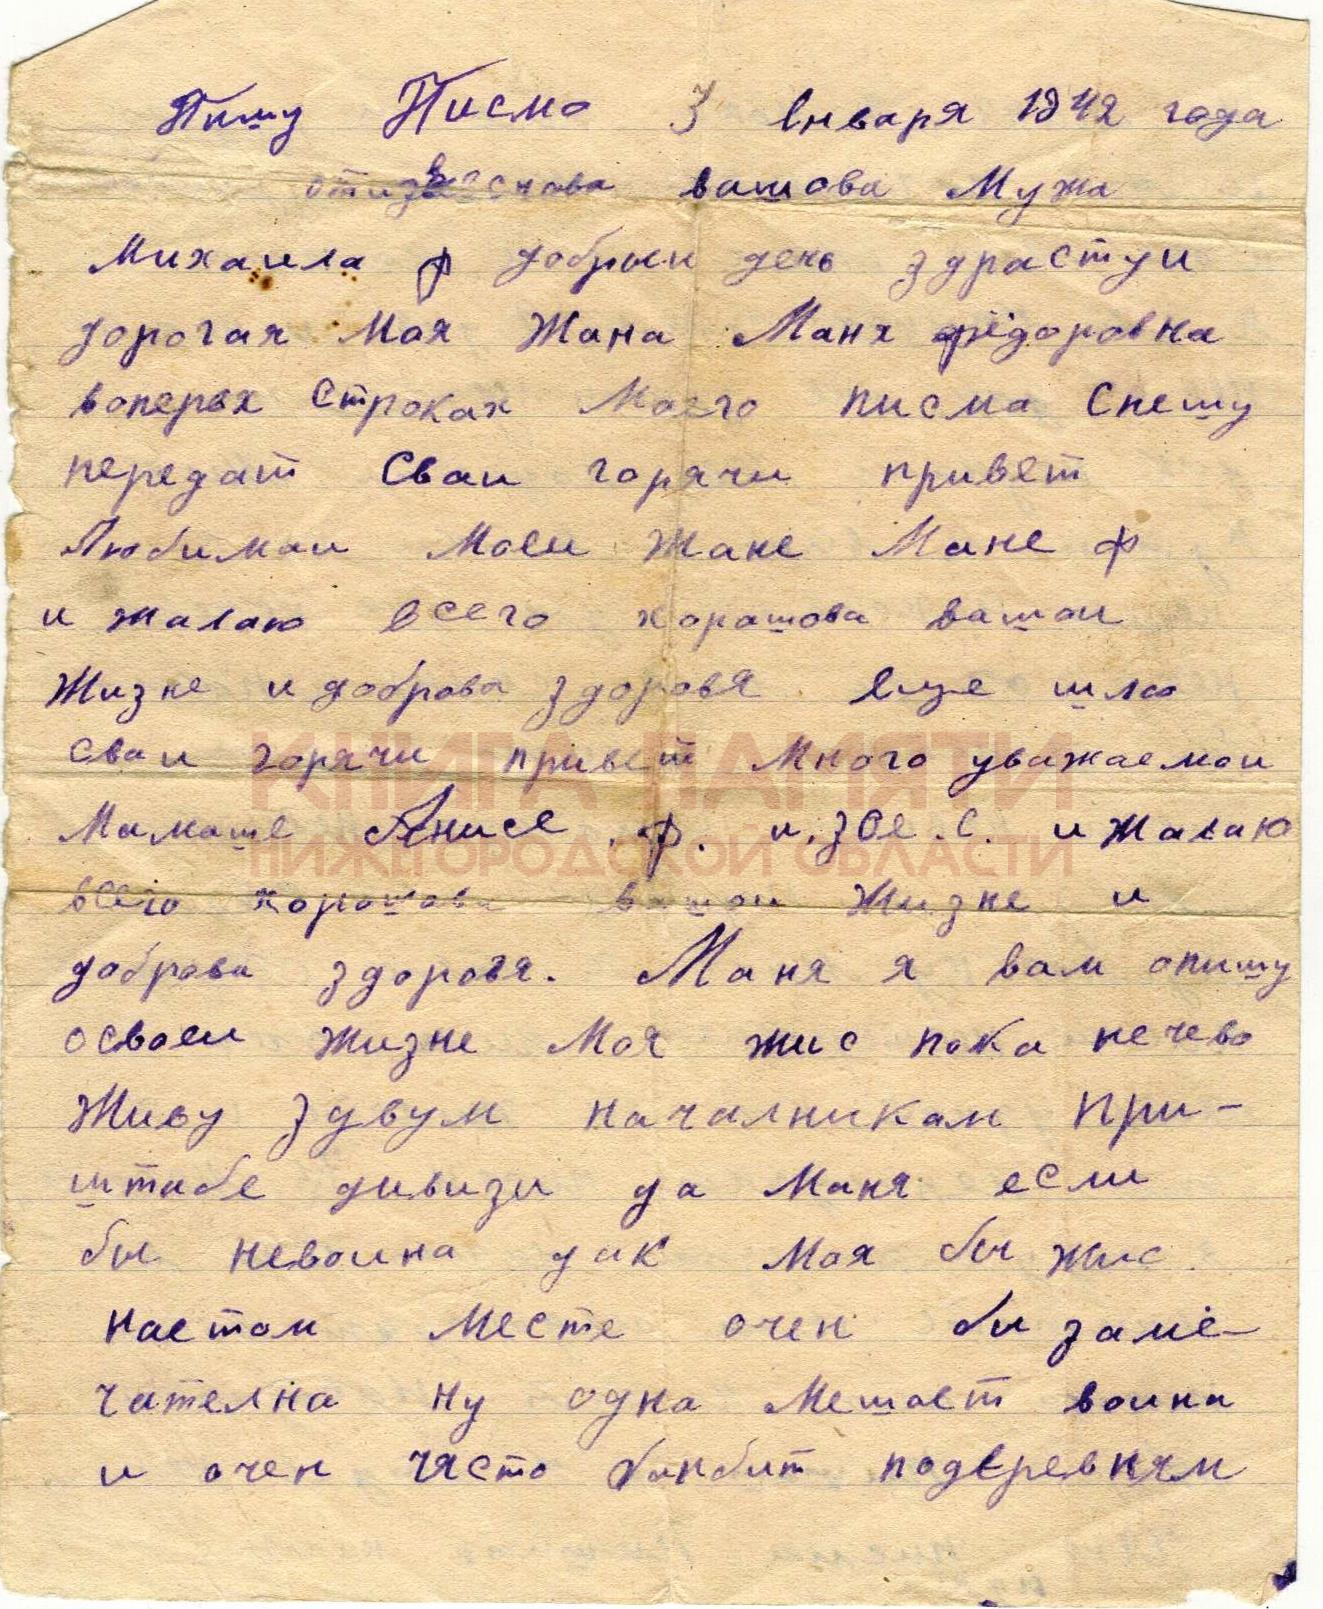 Пишу Писмо 3 январа 1942 года
отизвеснова вашова Мужа
Михаила ф добрыи день здрастуи
дорогая Моя Жана Маня фёдоровна
воперых Строках Моего писма Спешу
передат Сваи горячи привет
Любимаи Маеи Жане Мане ф
и жалаю всего хорашова вашаи
Жизне и доброва здоровя Еще шлю
сваи горячи привет Много уважаемои
Мамаше Анисе .ф. и.зое.с. и Жалаю
всего хорошова вашаи Жизне и
доброва здоровя. Маня я вам опишу
осваеи Жизне Моя жис пока нечево
Живу здвум началникам при-
штабе дивизи да Маня если
бы невоина дак Моя бы жис
настом Месте очен бы заме-
чателна ну одна Мешает воина
и очен часто бонбит подеревням
КНИГА ПАМЯТИ
НИЖЕГОРОДСКОЙ ОБЛАСТИ